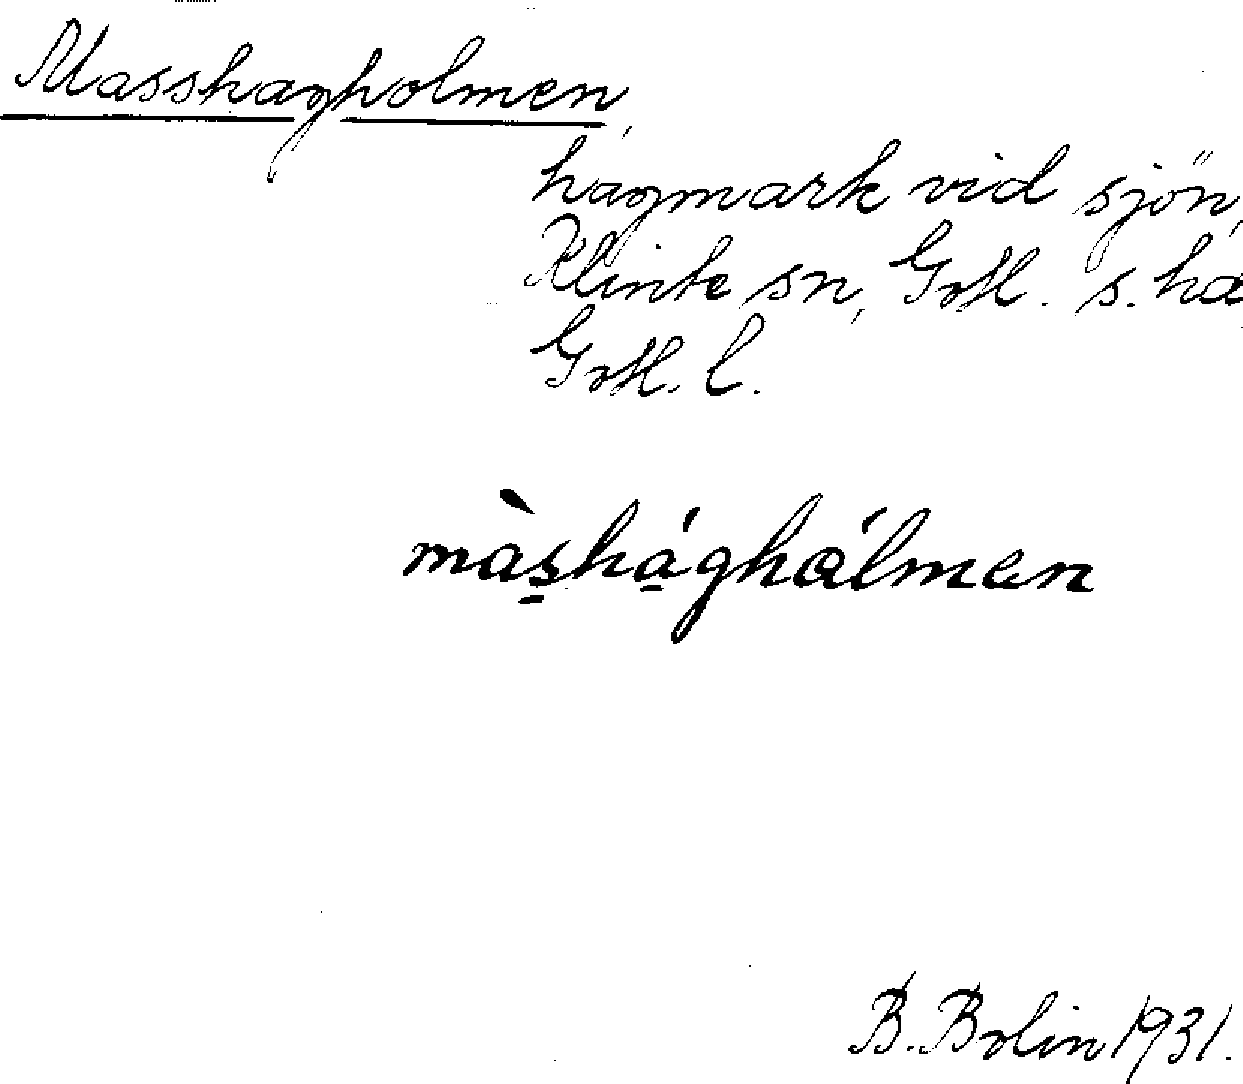 Masshagholmen,
hagmark vid sjön,
Klinte sn, Gotl. s. hd
Gotl. l.
màs̱há̱ghålmen
B. Bolin 1931.